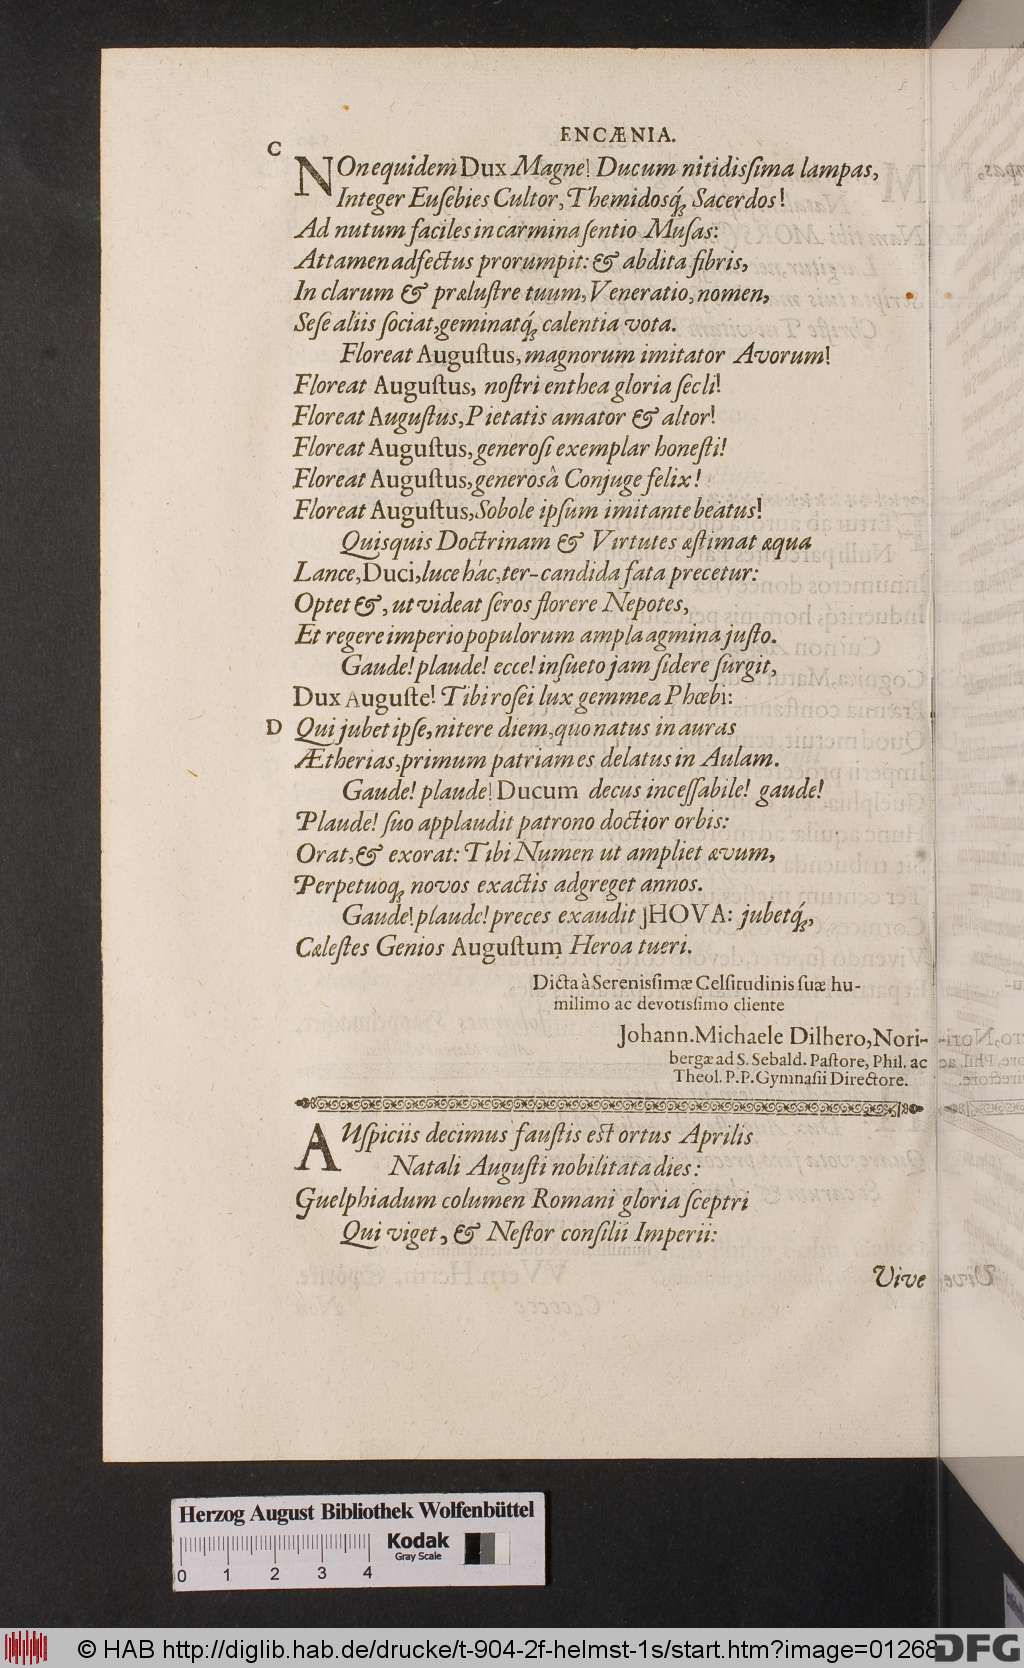 ENCÆNIA.
C
NOn equidem Dux Magne! Ducum nitidisſima lampas,
Integer Euſebies Cultor, Themidosq́; Sacerdos!
Ad nutum faciles in carmina ſentio Muſas:
Attamen adfectus prorumpit: & abdita fibris,
In clarum & præluſtre tuum, Veneratio, nomen,
Seſe aliis ſociat, geminatq́; calentia vota.
Floreat Auguſtus, magnorum imitator Avorum!
Floreat Auguſtus, noſtri enthea gloria ſecli!
Floreat Auguſtus, Pietatis amator & altor!
Floreat Auguſtus, generoſi exemplar honeſti!
Floreat Auguſtus, generosâ Conjuge felix!
Floreat Auguſtus, Sobole ipſum imitante beatus!
Quisquis Doctrinam & Virtutes æſtimat æqua
Lance, Duci, luce hác, ter-candida fata precetur:
Optet &, ut videat ſeros florere Nepotes,
Et regere imperio populorum ampla agmina juſto.
Gaude! plaude! ecce! inſueto jam ſidere ſurgit,
Dux Auguſte! Tibi roſei lux gemmea Phœbi:
D
Qui jubet ipſe, nitere diem, quo natus in auras
Ætherias, primum patriam es delatus in Aulam.
Gaude! plaude! Ducum decus inceſſabile! gaude!
Plaude! ſuo applaudit patrono doctior orbis:
Orat, & exorat: Tibi Numen ut ampliet ævum,
Perpetuoq; novos exactis adgreget annos.
Gaude! plaude! preces exaudit JHOVA: jubetq́;,
Cæleſtes Genios Auguſtum Heroa tueri.
Dicta à Serenisſimæ Celſitudinis ſuæ hu-
milimo ac devotisſimo cliente
Johann. Michaele Dilhero, Nori-
bergæ ad S. Sebald. Paſtore, Phil. ac
Theol. P.P. Gymnaſii Directore.
AUſpiciis decimus fauſtis eſt ortus Aprilis
Natali Auguſti nobilitata dies:
Guelphiadum columen Romani gloria ſceptri
Qui viget, & Neſtor conſilii Imperii:
Vive
Herzog August Bibliothek Wolfenbüttel
Kodak
Gray Scale
0 1 2 3 4
© HAB http://diglib.hab.de/drucke/t-904-2f-helmst-1s/start.htm?image=01268
DFG